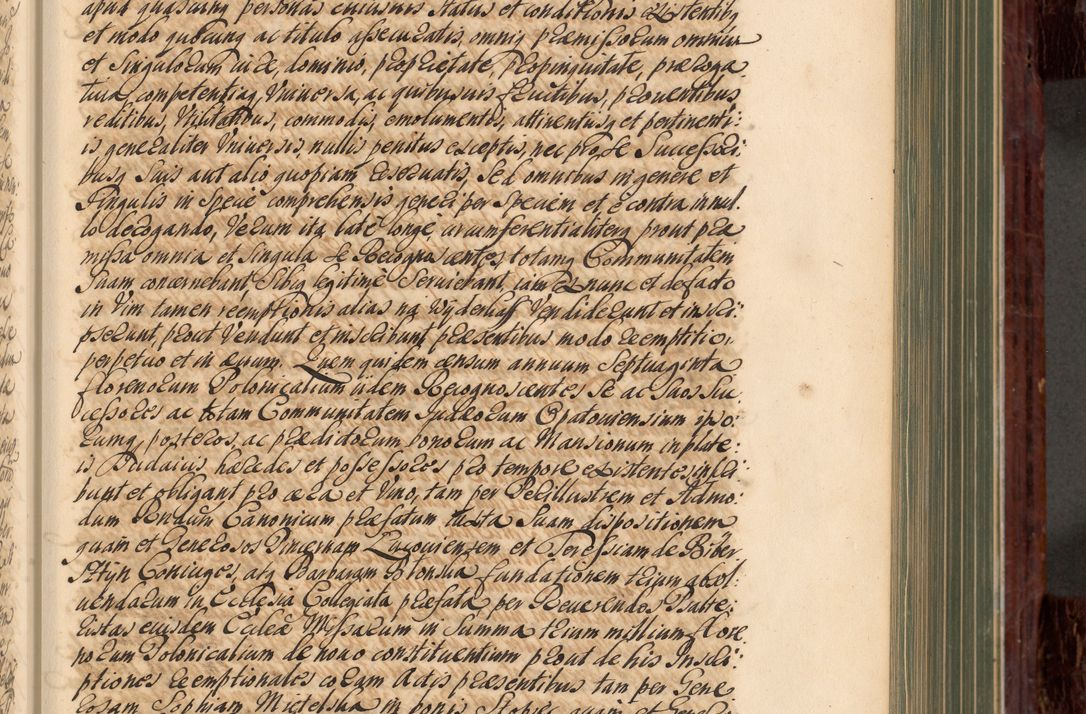 apud quascunq personas cuiusvis status et conditionis existentibq
et modo quocunq ac titulo assecuratis, omniq præmissorum omnium
et singulorum iure, dominio, proprietate, propinquitate, præroga
tiva, competentiaq, Vniversa, ac quibusvis fructibus, proventibus,
reditibus, Vtilitatibus, commodis, emolumentis, attinentiisq et pertinenti:
is generaliter Vniversis, nullis penitus exceptis, nec pro se Successori
busq Suis aut alio quopiam reservatis, Sed omnibus in genere et
Singulis in Specie comprehensis, generi per Speciem et e contra in nul
lo derogando, Verum ita late longe circumferentialiterq prout præ
missa omnia et singula se Recognoscentes, totamq Communitatem
Suam concernebant Sibiq legitime Serviebant, iam ex nunc et de facto
in Vim tamen reemptionis alias na wyderkaff Vendiderunt et inscri
pserunt, prout Vendunt et inscribunt præsentibus modo reemptitio,
perpetuo et in ævum. Quem quidem censum annuum Septuaginta
florenorum Polonicalium iidem Recognoscentes Se ac Suos Suc
cessores ac totam Communitatem Judæorum Opatoviensium ipso:
rumq, posteros, ac prædictorum bonorum ac Mansionum in plate:
is Judaicis hæredes et possessores pro tempore existentes inscri
bunt et obligant pro æra et Vino, tam per Perillustrem et Admo:
dum Rndum Canonicum præfatum iuxta Suam dispositionem
quam et Generosos Pincernam Lucoviensem et Teressiam de Biber
Styn Coniuges, atq Barbaram Potonsua fundationem trium absol:
vendarum in Ecclesia Collegiata præfata, per Reverendos Patre:
Ristas eiusdem Eccleæ Missarum in Summa trium millium flore
norum Polonicalium de novo constituentium prout de his Inscri:
ptiones reemptionales coram Actis præsentibus tam per Gene
rosam Sophiam Mietelska in bonis Stopiec quam et Genero